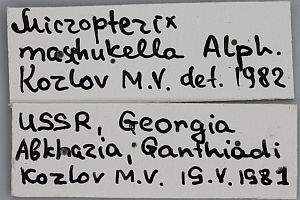 Micropterix
mashukella Alph.
Kozlov M.V. det. 1982
USSR, Georgia
Abkhazia, Ganthiadi
Kozlov M.V. 19.V.1981